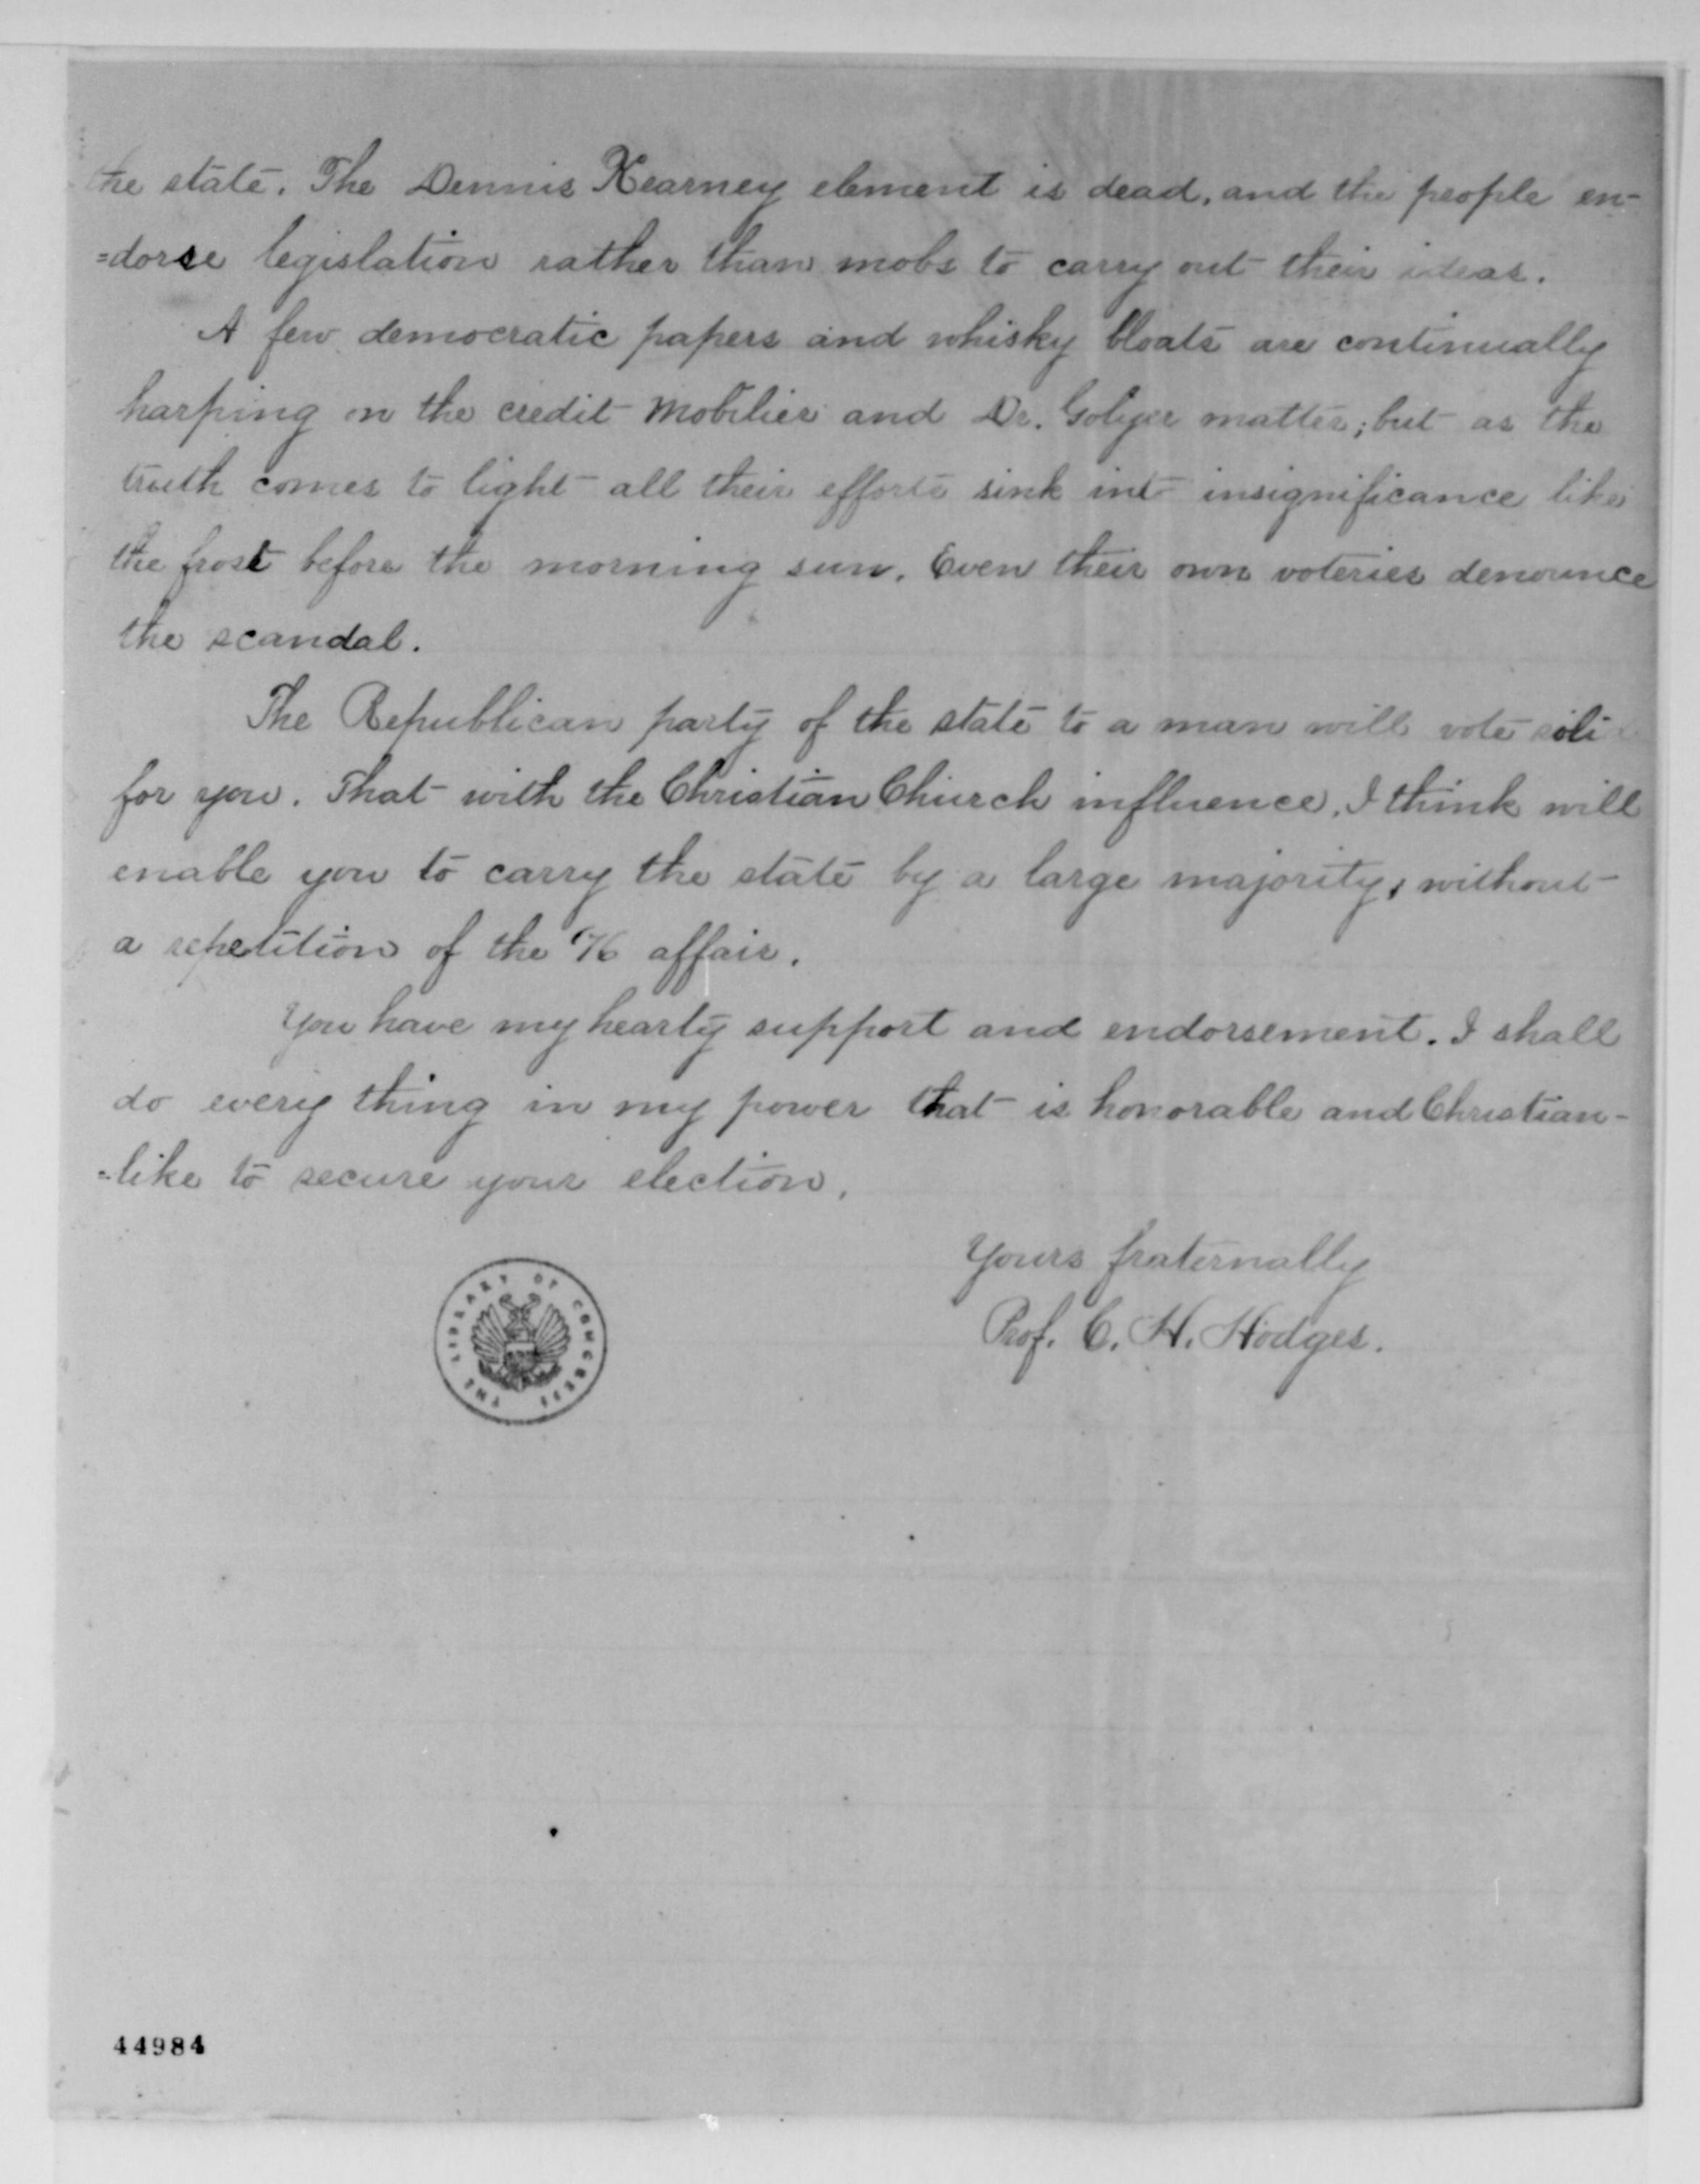 the state. The Dennis Kearney element is dead, and the people en-
=dorse legislation rather than mobs to carry out their ideas.
A few democratic papers and whisky bloats are continually
harping on the credit Mobilier and Dr. Golyer matter; but as the
truth comes to light all their efforts sink into insignificance like
the frost before the morning sun. Even their own voteries denounce
the scandal.
The Republican party of the state to a man will vote soli
for you. That with the Christian Church influence, I think will
enable you to carry the state by a large majority, without
a repetition of the '76 affair.
You have my hearty support and endorsement. I shall
do every thing in my power that is honorable and Christian-
=like to secure your election.
Yours fraternally
Prof. C. H. Hodges.
THE LIBRARY OF CONGRESS
44984